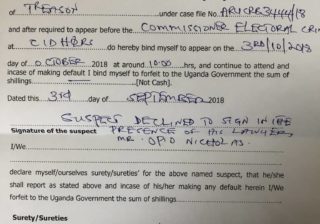 of TREASON under case file No. ARUCRB344/18
and after required to appear before the COMMISSIONER ELECTORAL CRI
at CID HQRS do hereby bind myself to appear on the 3RD/10/2018
day of OCTOBER 2018 at around 10:00 hrs, and continue to attend and
incase of making default I bind myself to forfeit to the Uganda Government the sum of
shillings [Not Cash].
Dated this 3rd day of SEPTEMBER 2018
SUSPECT DECLINED TO SIGN IN THE
Signature of the suspect PRESENCE OF HIS LAWYER,
I/We MR. OPIO NICHOLAS.
declare myself/ourselves surety/sureties' for the above named suspect, that he/she
shall report as stated above and incase of his/her making any default herein I/We
forfeit to the Uganda Government the sum of shillings
Surety/Sureties